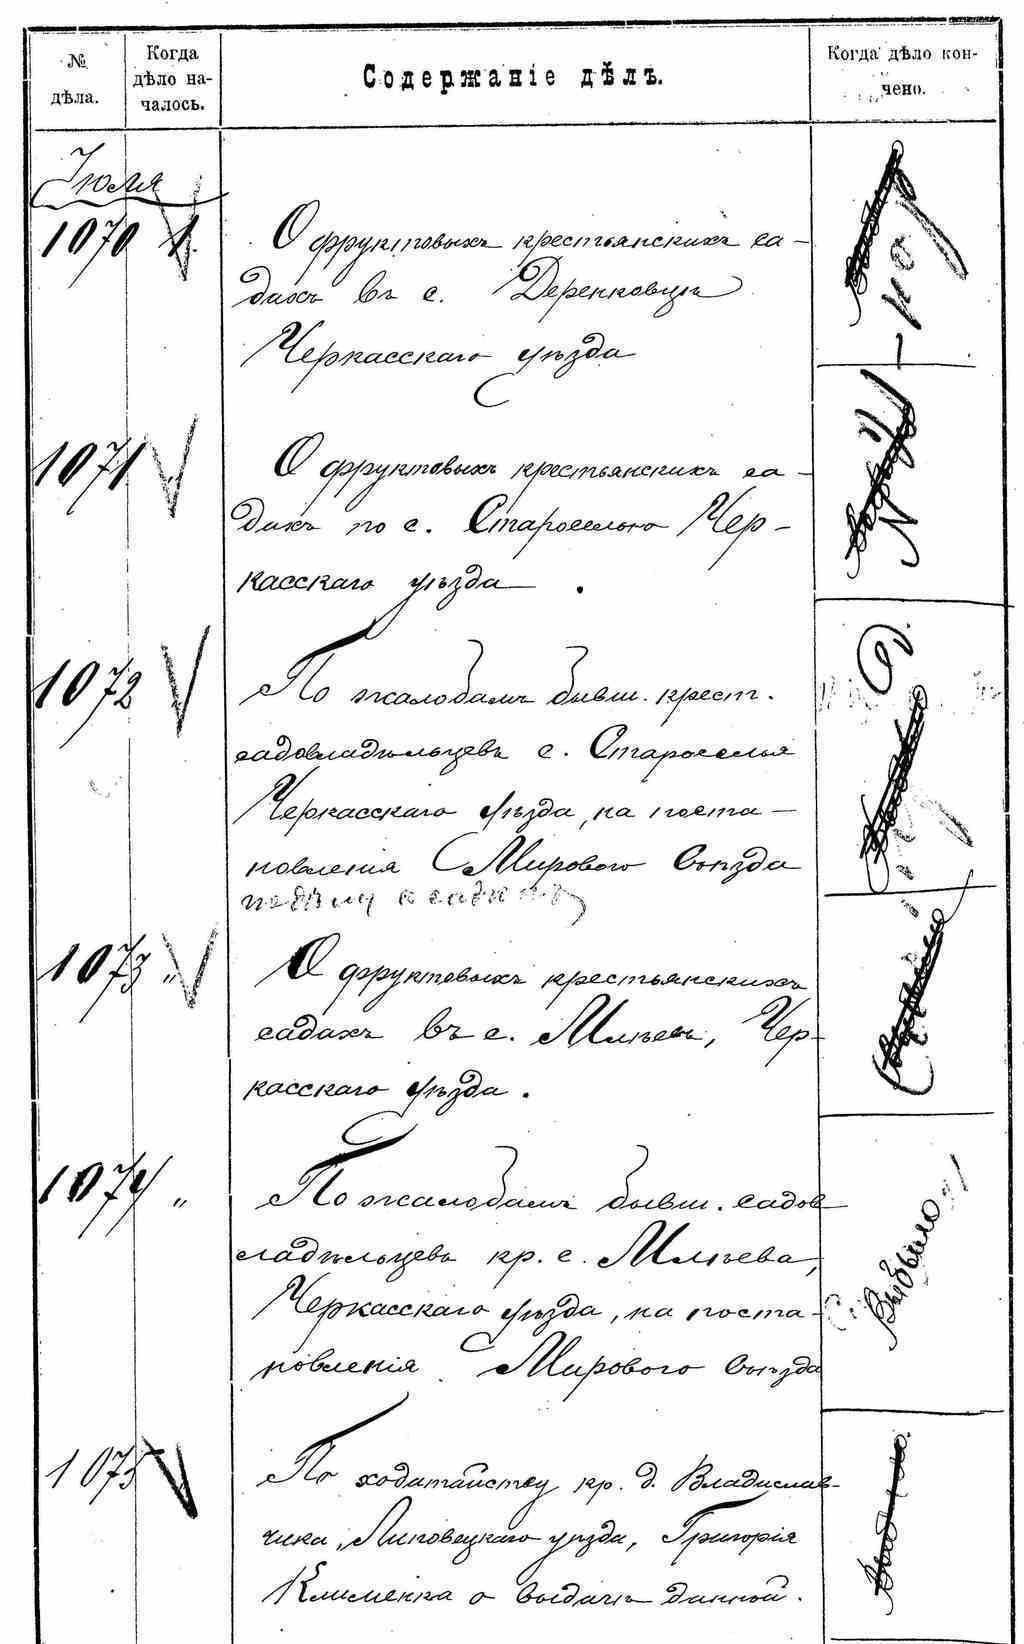 № дѣла.
Когда дѣло на-
чалось.
Содержаніе дѣлъ.
Когда дѣло кон-
чено.
Іюля
1070 1.
О фруктовыхъ крестьянскихъ са-
дахъ въ с. Деренковцѣ
Черкасскаго уѣзда
1071
О фруктовыхъ крестьянскихъ са-
дахъ по с. Староселью Чер-
касскаго уѣзда.
1072
По жалобамъ бывш. крест.
садовладѣльцевъ с. Староселья
Черкасскаго уѣзда, на поста-
новленія Мирового Съѣзда
по дѣлу о садахъ
1073 "
О фруктовыхъ крестьянскихъ
садахъ въ с. Млѣевѣ, Чер-
касскаго уѣзда.
1074 "
По жалобамъ бывш. садов-
ладѣльцевъ кр. с. Млѣева,
Черкасскаго уѣзда, на поста-
новленія Мирового Съѣзда
Выбыло
1075
По ходатайству кр. д. Владислав-
чика, Липовецкаго уѣзда, Григорія
Клименка о выдачѣ данной.